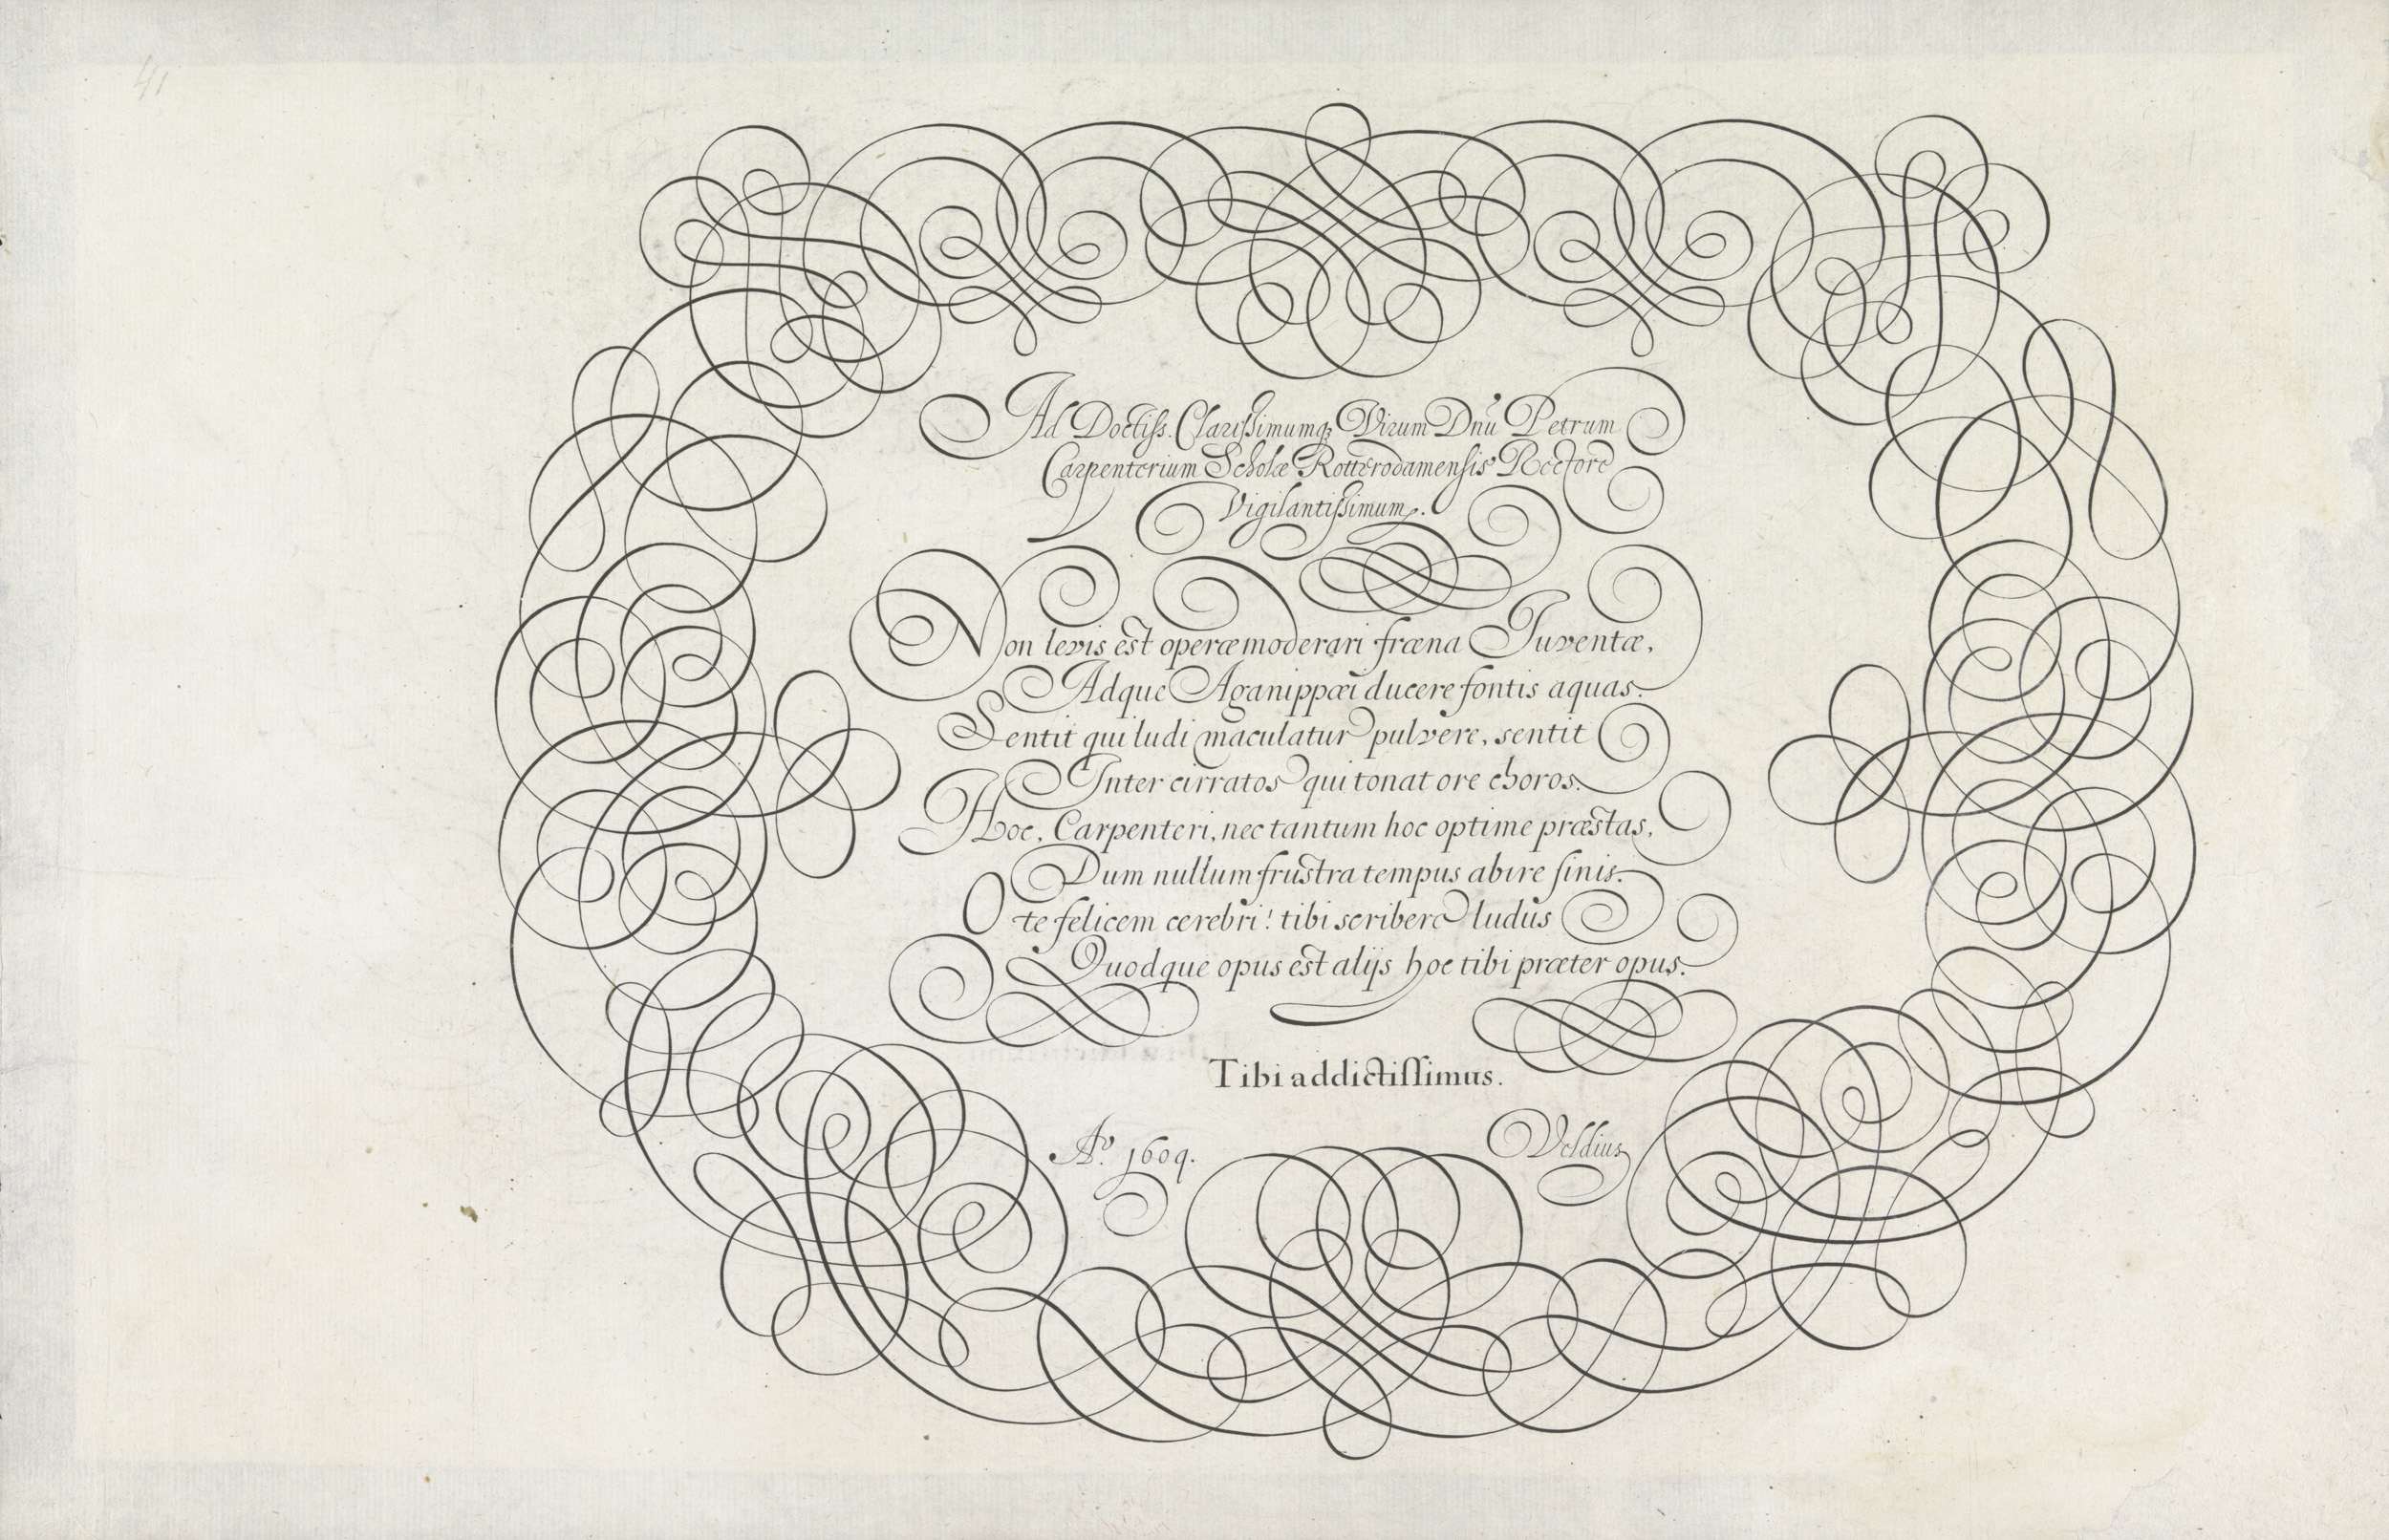 41
Ad Doctiss. Clarissimumq; Virum Dnū Petrum
Carpenterium Scholæ Rotterodamensis Rectorē
Vigilantissimum.
Non levis est operæ moderari fræna Iuventæ,
Adque Aganippæi ducere fontis aquas.
Sentit qui ludi maculatur pulvere, sentit
Inter cirratos qui tonat ore choros.
Hoc, Carpenteri, nec tantum hoc optime præstas,
Dum nullum frustra tempus abire sinis.
O te felicem cerebri! tibi scribere ludus
Quodque opus est alijs hoc tibi præter opus.
Tibi addictissimus.
Aº. 1609. Veldius